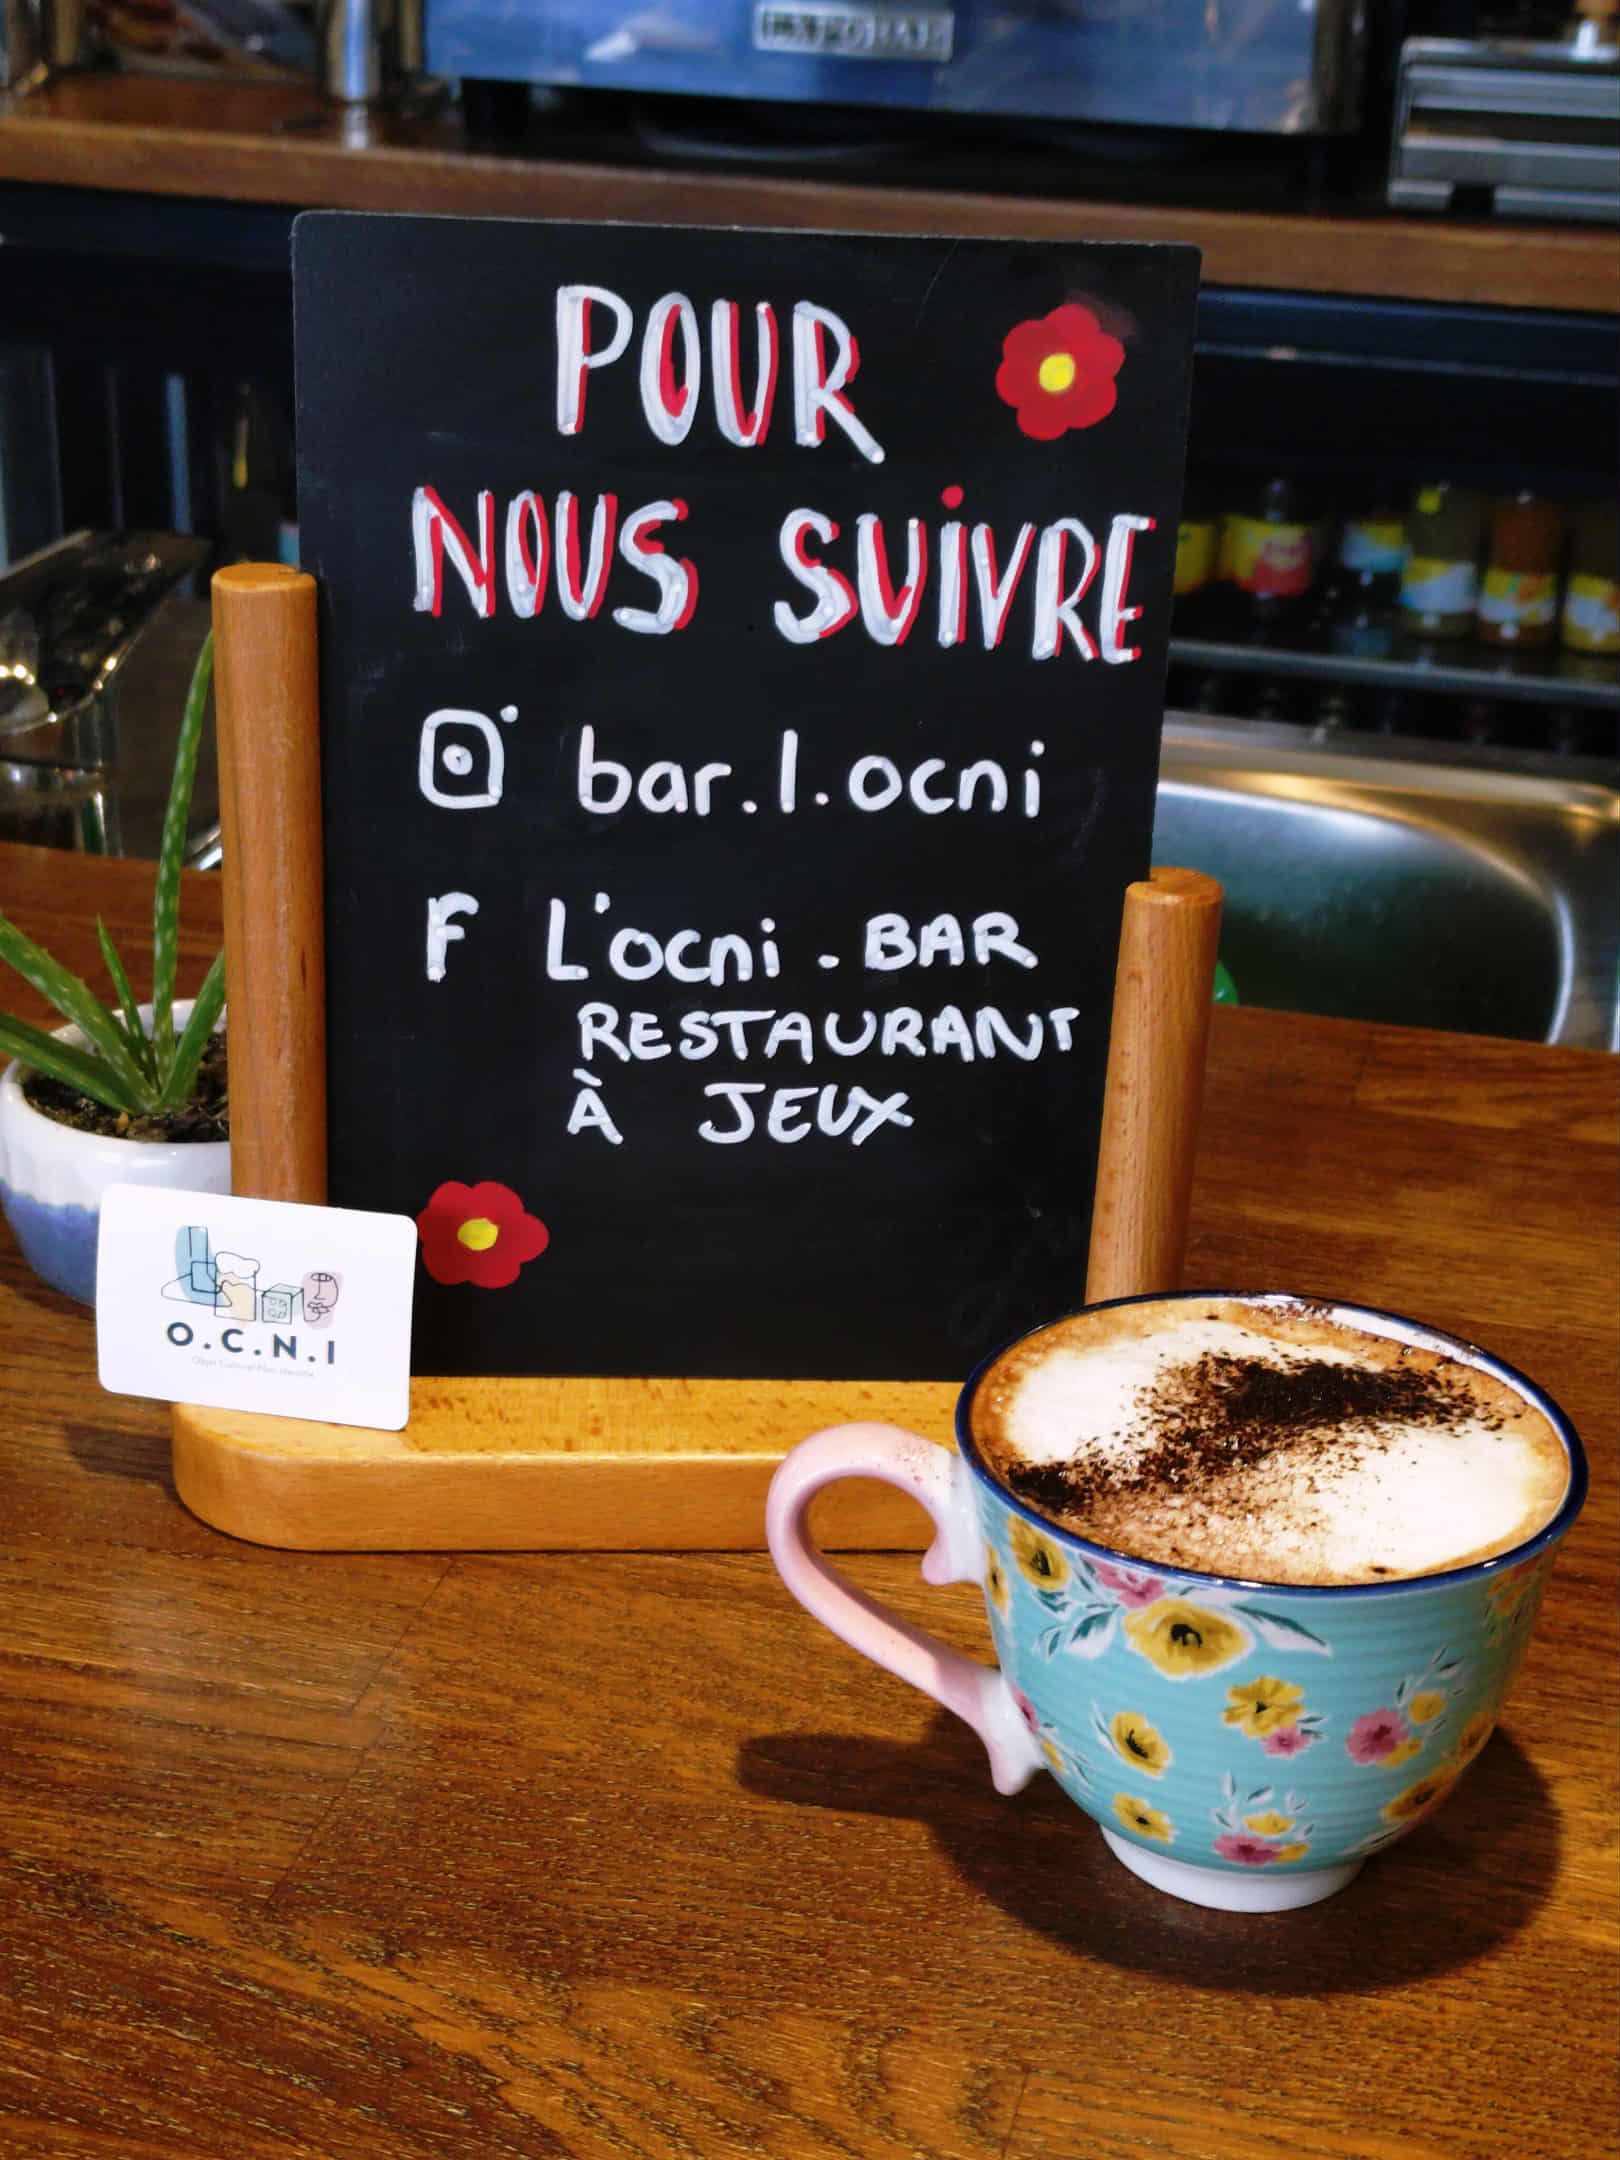 POUR
NOUS SUIVRE
bar.l.ocni
F L'ocni . BAR
RESTAURANT
À JEUX
O.C.N.I
Objet Culturel Non Identifié